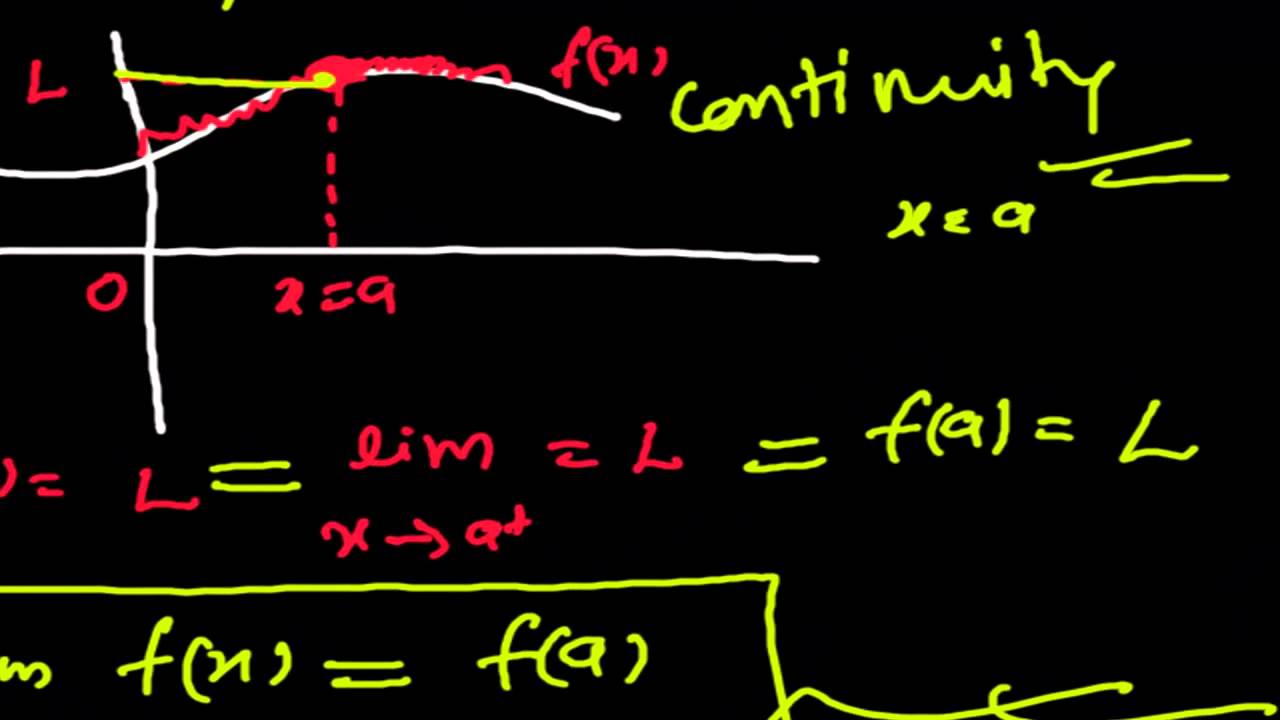 L
f(x)
continuity
x = a
0
x = a
) = L = lim = L = f(a) = L
x → a+
m f(x) = f(a)